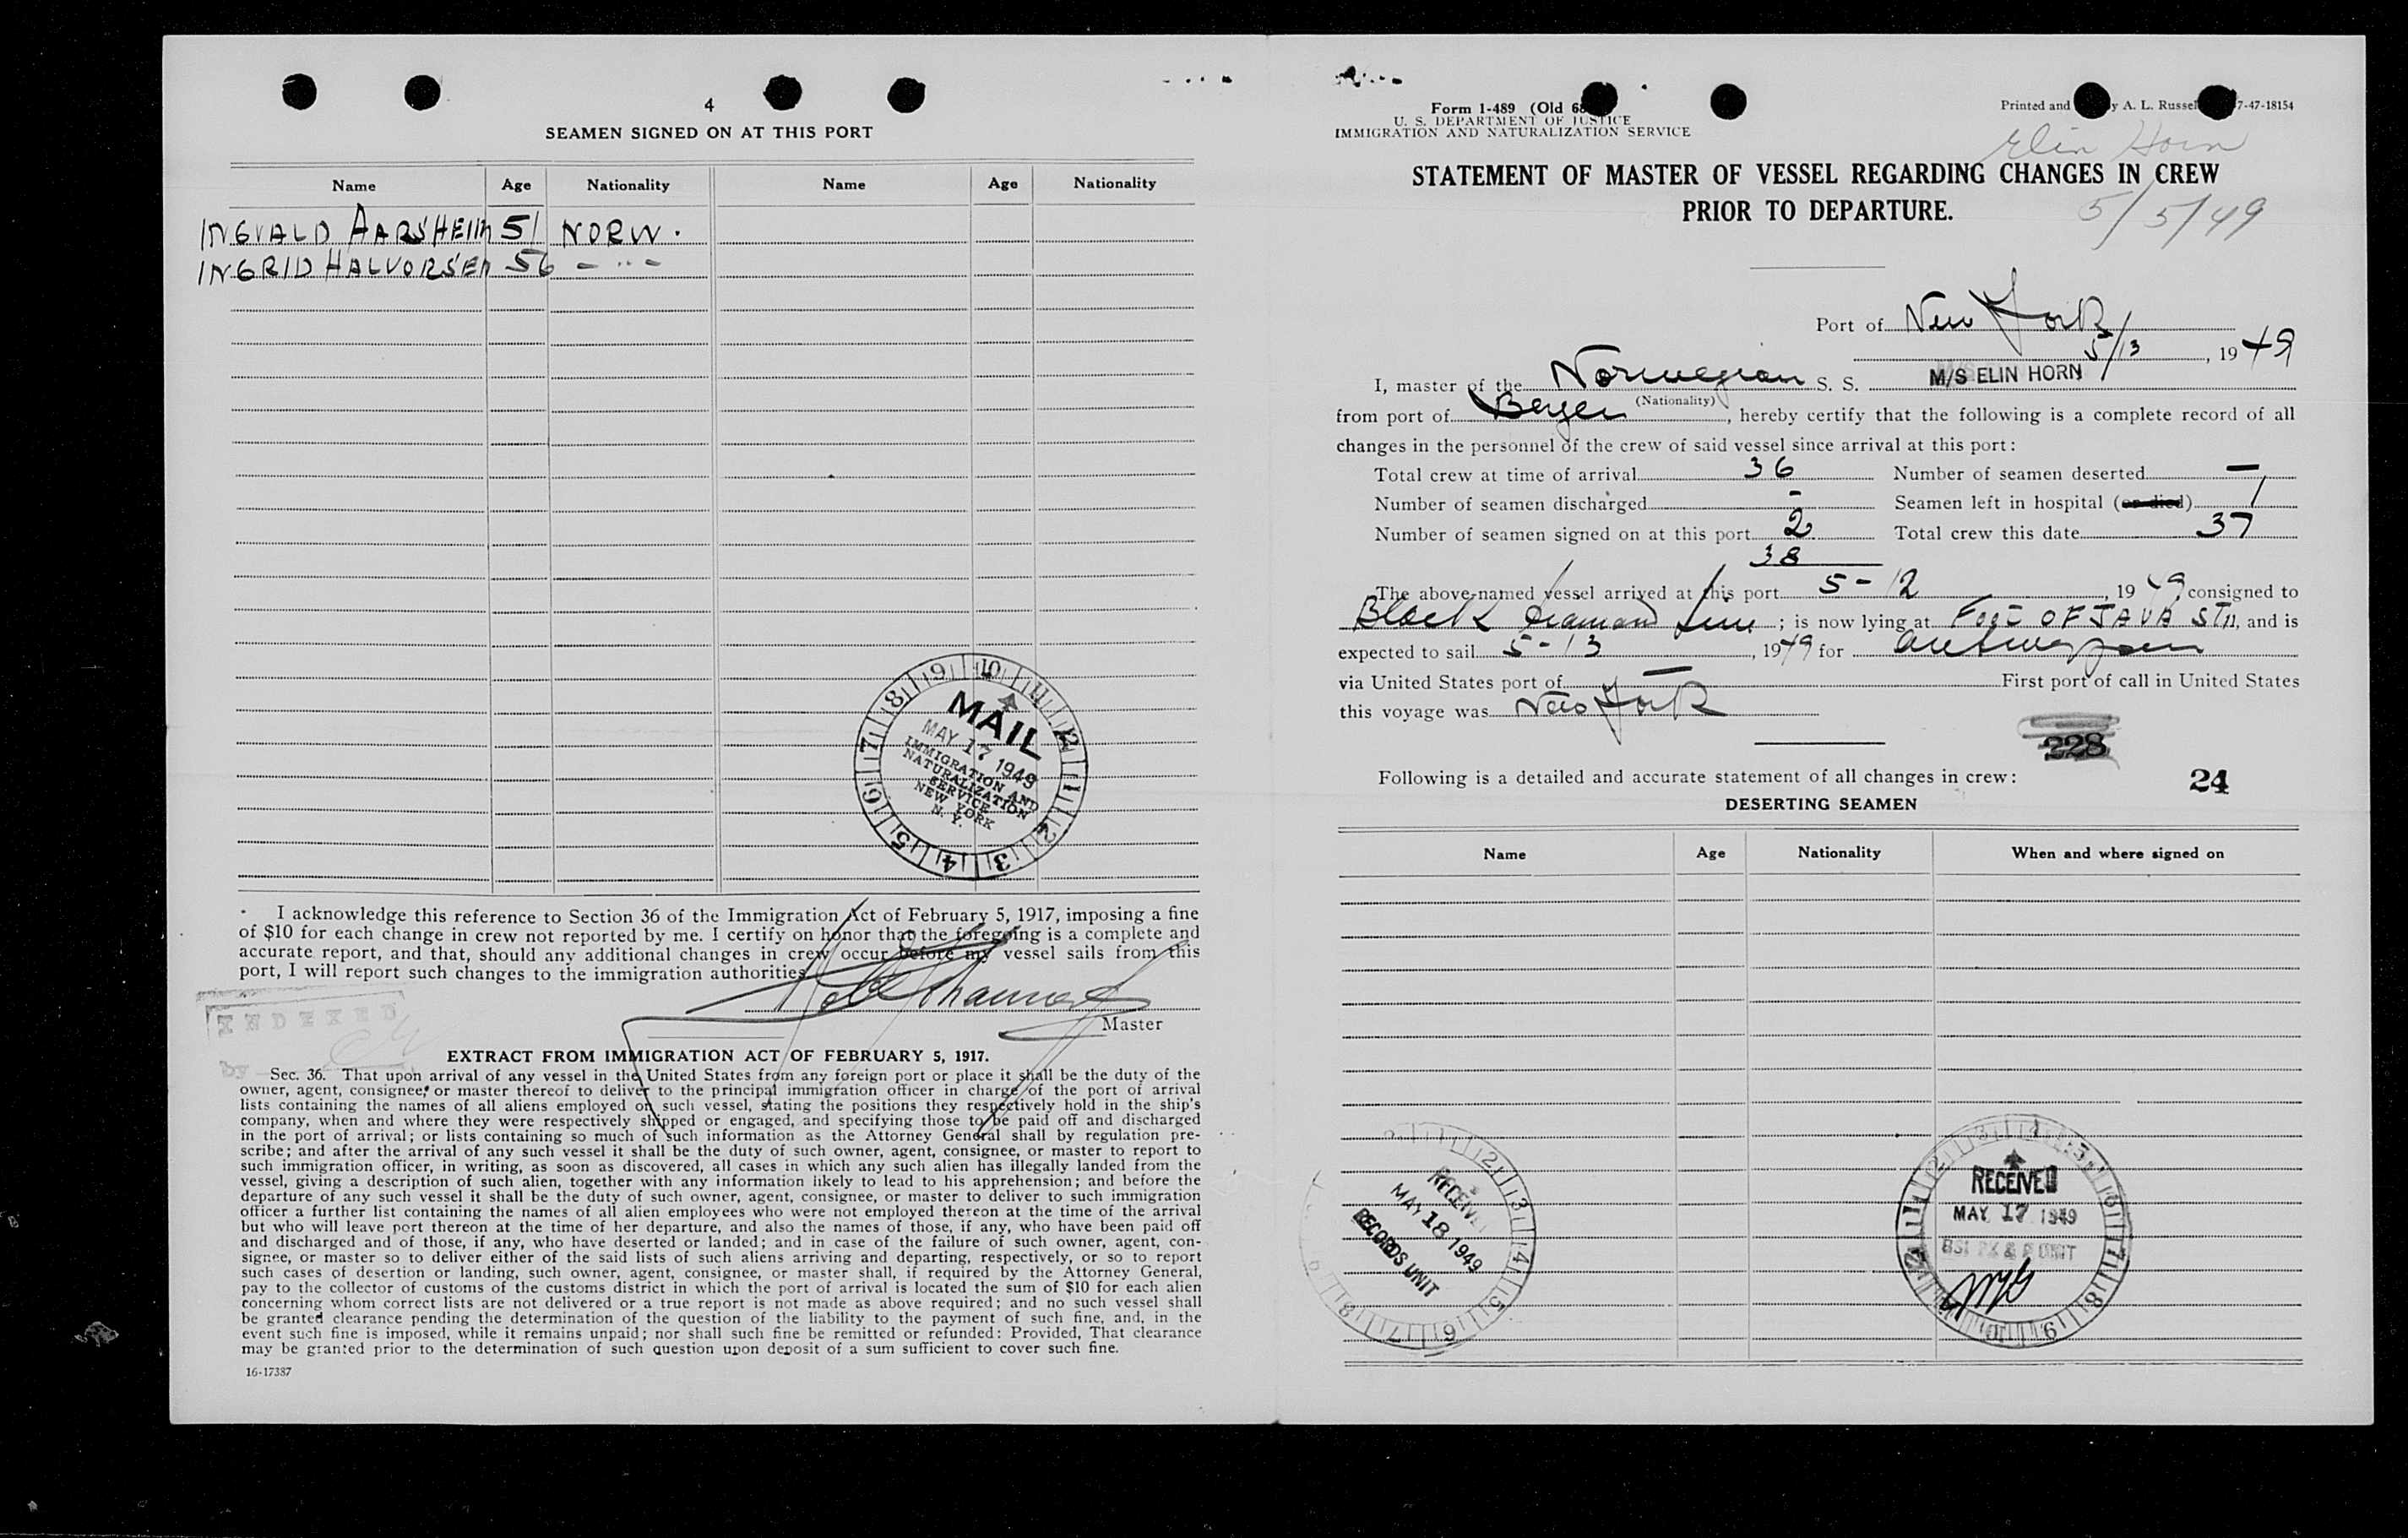 4
SEAMEN SIGNED ON AT THIS PORT
Name Age Nationality Name Age Nationality
INGVALD AARSHEIM 51 NORW.
INGRID HALVORSEN 56 - " -
MAIL
MAY 17 1949
IMMIGRATION AND
NATURALIZATION
SERVICE
NEW YORK
N. Y.
I acknowledge this reference to Section 36 of the Immigration Act of February 5, 1917, imposing a fine
of $10 for each change in crew not reported by me. I certify on honor that the foregoing is a complete and
accurate report, and that, should any additional changes in crew occur before my vessel sails from this
port, I will report such changes to the immigration authorities
Master
INDEXED
by
EXTRACT FROM IMMIGRATION ACT OF FEBRUARY 5, 1917.
Sec. 36. That upon arrival of any vessel in the United States from any foreign port or place it shall be the duty of the
owner, agent, consignee, or master thereof to deliver to the principal immigration officer in charge of the port of arrival
lists containing the names of all aliens employed on such vessel, stating the positions they respectively hold in the ship's
company, when and where they were respectively shipped or engaged, and specifying those to be paid off and discharged
in the port of arrival; or lists containing so much of such information as the Attorney General shall by regulation pre-
scribe; and after the arrival of any such vessel it shall be the duty of such owner, agent, consignee, or master to report to
such immigration officer, in writing, as soon as discovered, all cases in which any such alien has illegally landed from the
vessel, giving a description of such alien, together with any information likely to lead to his apprehension; and before the
departure of any such vessel it shall be the duty of such owner, agent, consignee, or master to deliver to such immigration
officer a further list containing the names of all alien employees who were not employed thereon at the time of the arrival
but who will leave port thereon at the time of her departure, and also the names of those, if any, who have been paid off
and discharged and of those, if any, who have deserted or landed; and in case of the failure of such owner, agent, con-
signee, or master so to deliver either of the said lists of such aliens arriving and departing, respectively, or so to report
such cases of desertion or landing, such owner, agent, consignee, or master shall, if required by the Attorney General,
pay to the collector of customs of the customs district in which the port of arrival is located the sum of $10 for each alien
concerning whom correct lists are not delivered or a true report is not made as above required; and no such vessel shall
be granted clearance pending the determination of the question of the liability to the payment of such fine, and, in the
event such fine is imposed, while it remains unpaid; nor shall such fine be remitted or refunded: Provided, That clearance
may be granted prior to the determination of such question upon deposit of a sum sufficient to cover such fine.
16-17387
Form 1-489 (Old 68
U. S. DEPARTMENT OF JUSTICE
IMMIGRATION AND NATURALIZATION SERVICE
Printed and y A. L. Russel 7-47-18154
Elin Horn
STATEMENT OF MASTER OF VESSEL REGARDING CHANGES IN CREW
PRIOR TO DEPARTURE.
5/5/49
Port of New York
5/13, 1949
I, master of the Norwegian S. S. M/S ELIN HORN
(Nationality)
from port of Bergen, hereby certify that the following is a complete record of all
changes in the personnel of the crew of said vessel since arrival at this port:
Total crew at time of arrival 36 Number of seamen deserted —
Number of seamen discharged - Seamen left in hospital (or died) 1
Number of seamen signed on at this port 2 Total crew this date 37
38
The above-named vessel arrived at this port 5-12, 1949 consigned to
Black Diamond Line; is now lying at FOOT OF JAVA ST, and is
expected to sail 5-13, 1949 for Antwerpen
via United States port of — First port of call in United States
this voyage was New York
228
Following is a detailed and accurate statement of all changes in crew: 24
DESERTING SEAMEN
Name Age Nationality When and where signed on
RECEIVED
MAY 18 1949
RECORDS UNIT
RECEIVED
MAY 17 1949